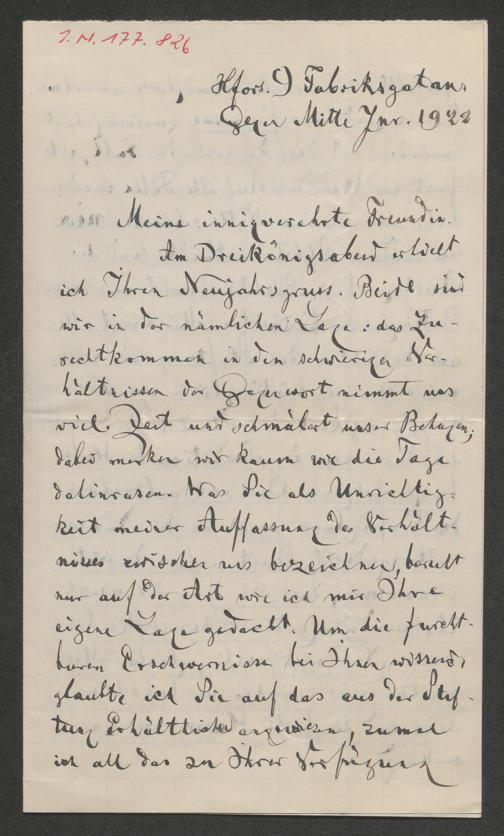 I.N. 177.826
Hfors. 9 Fabriksgatan.
Gegen Mitte Jnr. 1922
Meine innigverehrte Freundin.
Am Dreikönigsabend erhielt
ich Ihren Neujahrsgruss. Beide sind
wir in der nämlichen Lage: das Zu-
rechtkommen in den schwierigen Ver-
hältnissen der Gegenwart nimmt uns
viel Zeit und schmälert unser Behagen;
dabei merken wir kaum wie die Tage
dahinrasen. Was Sie als Unrichtig-
keit meiner Auffassung des Verhält-
nisses zwischen uns bezeichnen, beruht
nur auf der Art wie ich mir Ihre
eigene Lage gedacht. Um die furcht-
baren Erschwernisse bei Ihnen wissend,
glaubte ich Sie auf das aus der Stif-
tung Erhältliche angewiesen, zumal
ich all das zu Ihrer Verfügung